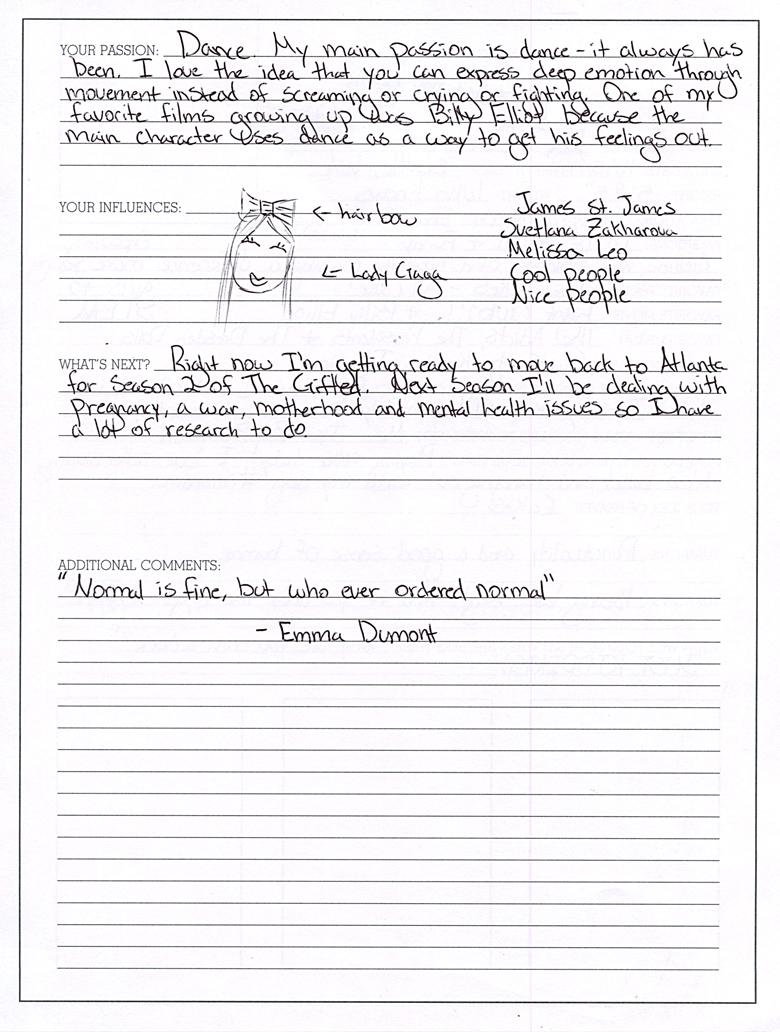 YOUR PASSION: Dance. My main passion is dance - it always has
been. I love the idea that you can express deep emotion through
movement instead of screaming or crying or fighting. One of my
favorite films growing up was Billy Elliot because the
main character uses dance as a way to get his feelings out.
YOUR INFLUENCES:
← hair bow
← Lady Gaga
James St. James
Svetlana Zakharova
Melissa Leo
Cool people
Nice people
WHAT'S NEXT? Right now I'm getting ready to move back to Atlanta
for Season 2 of The Gifted. Next Season I'll be dealing with
pregnancy, a war, motherhood and mental health issues so I have
a lot of research to do.
ADDITIONAL COMMENTS:
"Normal is fine, but who ever ordered normal"
- Emma Dumont